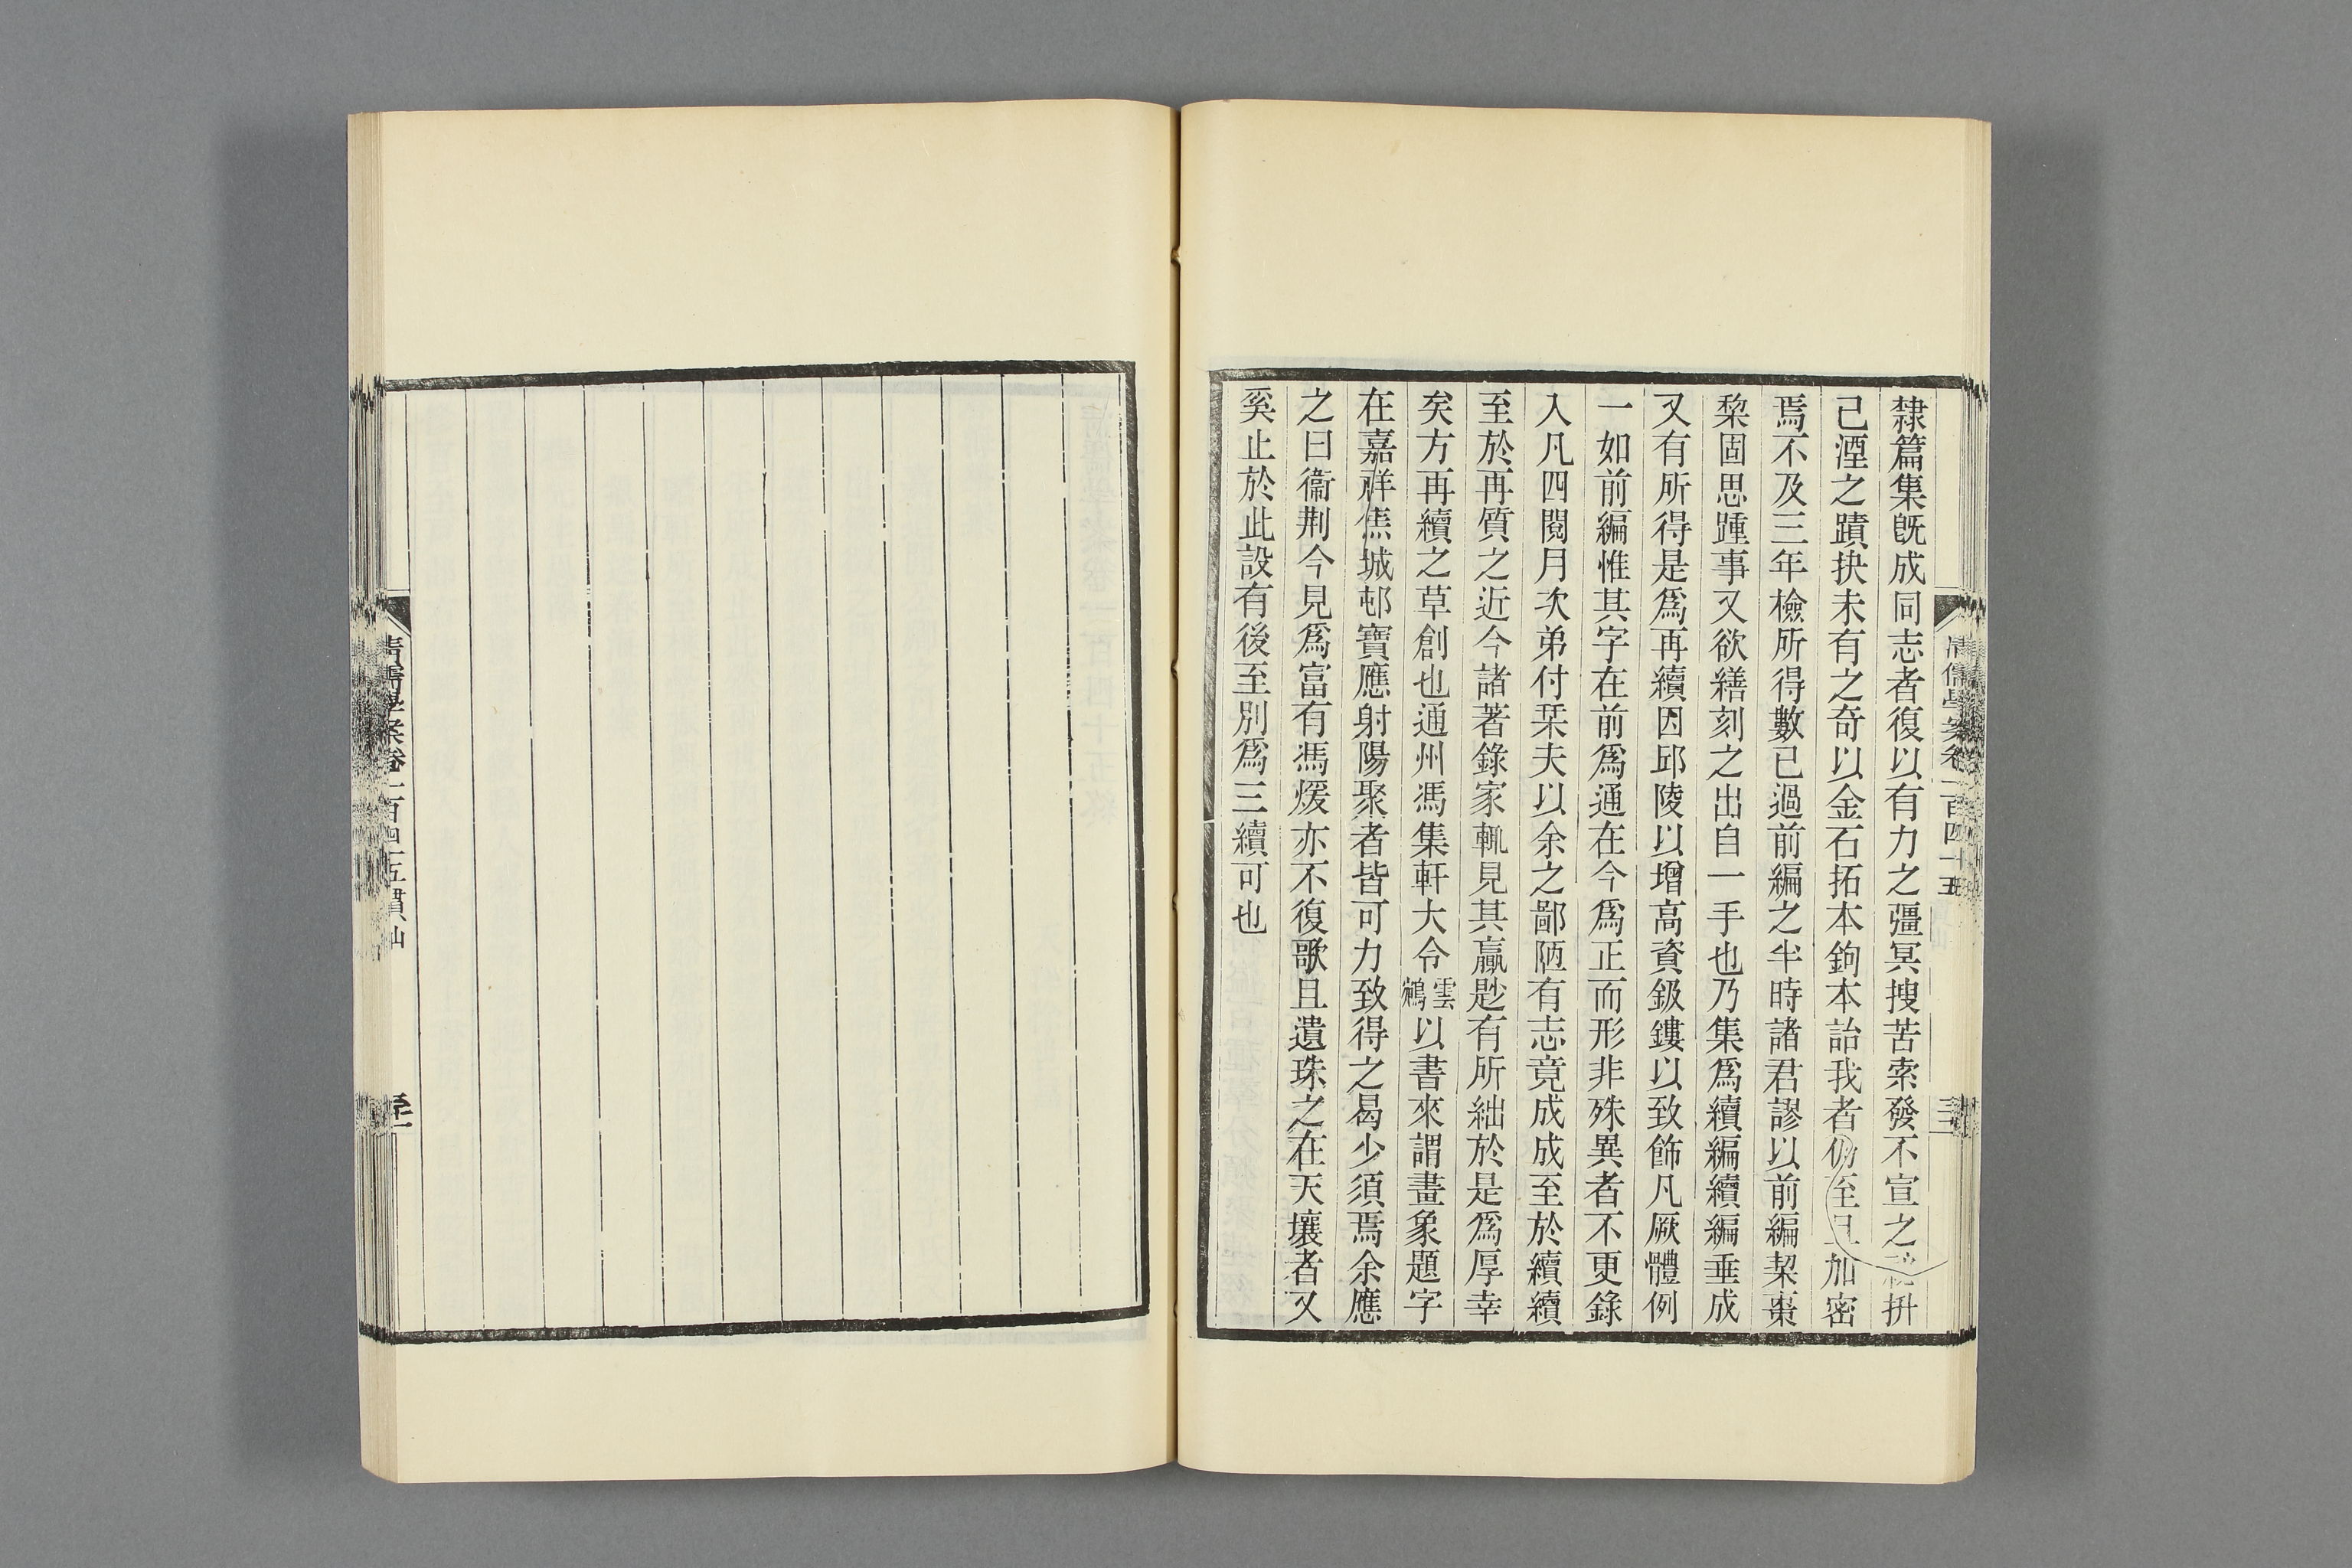 隸篇集旣成同志者復以有力之彊冥搜苦索發不宣之祕拚
已湮之蹟抉未有之奇以金石拓本鉤本詒我者仍至且加密
焉不及三年檢所得數已過前編之半時諸君謬以前編栔棗
棃固思踵事又欲繕刻之出自一手也乃集爲續編續編垂成
又有所得是爲再續因邱陵以增高資鈒鏤以致飾凡厥體例
一如前編惟其字在前爲通在今爲正而形非殊異者不更錄
入凡四閱月次弟付栞夫以余之鄙陋有志竟成成至於續續
至於再質之近今諸著錄家輒見其贏尟有所絀於是爲厚幸
矣方再續之草創也通州馮集軒大令雲鵷以書來謂畫象題字
在嘉祥焦城邨寶應射陽聚者皆可力致得之曷少須焉余應
之曰衞荆今見爲富有馮煖亦不復歌且遺珠之在天壤者又
奚止於此設有後至別爲三續可也
清儒學案卷一百四十五
清儒學案卷一百四十五 貫山